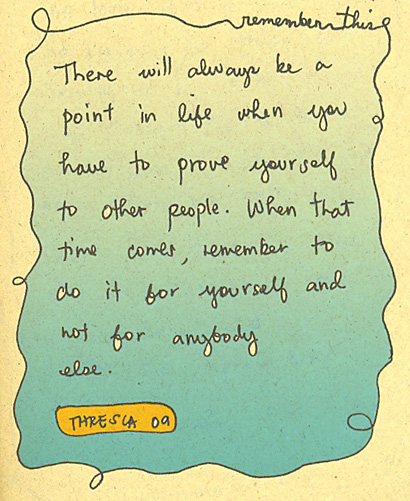 remember this
There will always be a
point in life when you
have to prove yourself
to other people. When that
time comes, remember to
do it for yourself and
not for anybody
else.
THRESCA 09